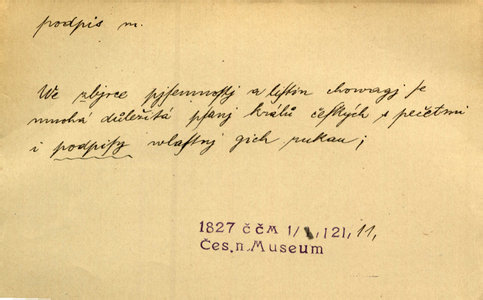 podpis m.
We zbjrce pjsemnostj a listin chowagj se
mnohá důležitá psanj králů českých s pečetmi
i podpisy wlastnj gich rukau;
1827 ČČM 1/I, 121, 11,
Čes. n. Museum